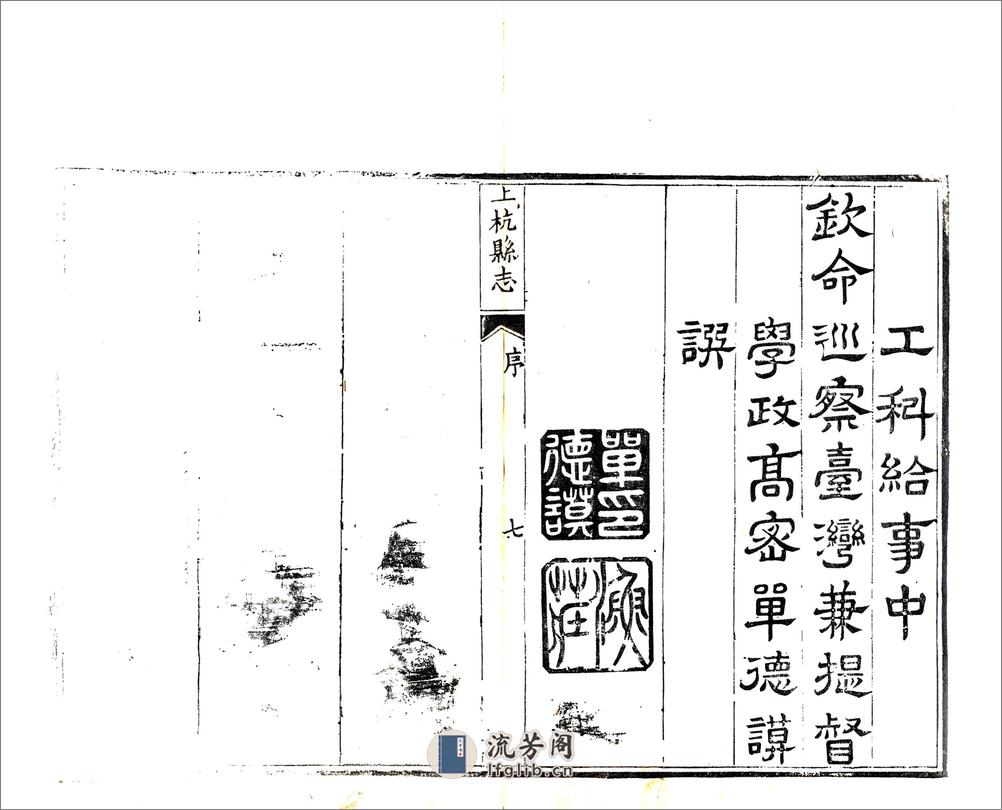 工科給事中
欽命巡察臺灣兼提督
學政髙宻單德謨
譔
單印德謨
漁莊
上杭縣志
序
七
流芳阁
lfglib.cn